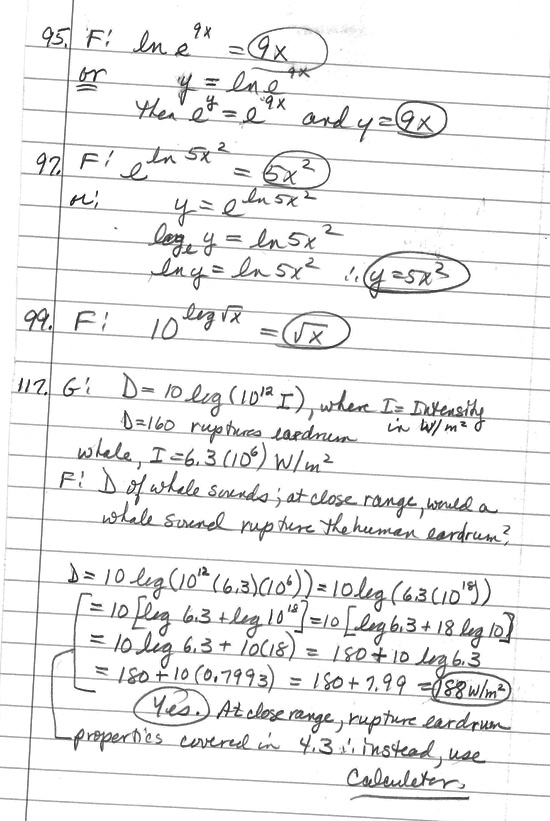 95. F: ln e^9x = 9x
or y = ln e^9x
then e^y = e^9x and y = 9x
97. F: e^ln 5x² = 5x²
or: y = e^ln 5x²
log_e y = ln 5x²
ln y = ln 5x² ∴ y = 5x²
99. F: 10^log √x = √x
117. G: D = 10 log (10¹² I), where I = Intensity
in W/m²
D = 160 ruptures eardrum
whale, I = 6.3 (10⁶) W/m²
F: D of whale sounds; at close range, would a
whale sound rupture the human eardrum?
D = 10 log (10¹² (6.3)(10⁶)) = 10 log (6.3 (10¹⁸))
= 10 [log 6.3 + log 10¹⁸] = 10 [log 6.3 + 18 log 10]
= 10 log 6.3 + 10(18) = 180 + 10 log 6.3
= 180 + 10 (0.7993) = 180 + 7.99 = 188 W/m²
Yes. At close range, rupture eardrum
properties covered in 4.3 ∴ instead, use
Calculator.